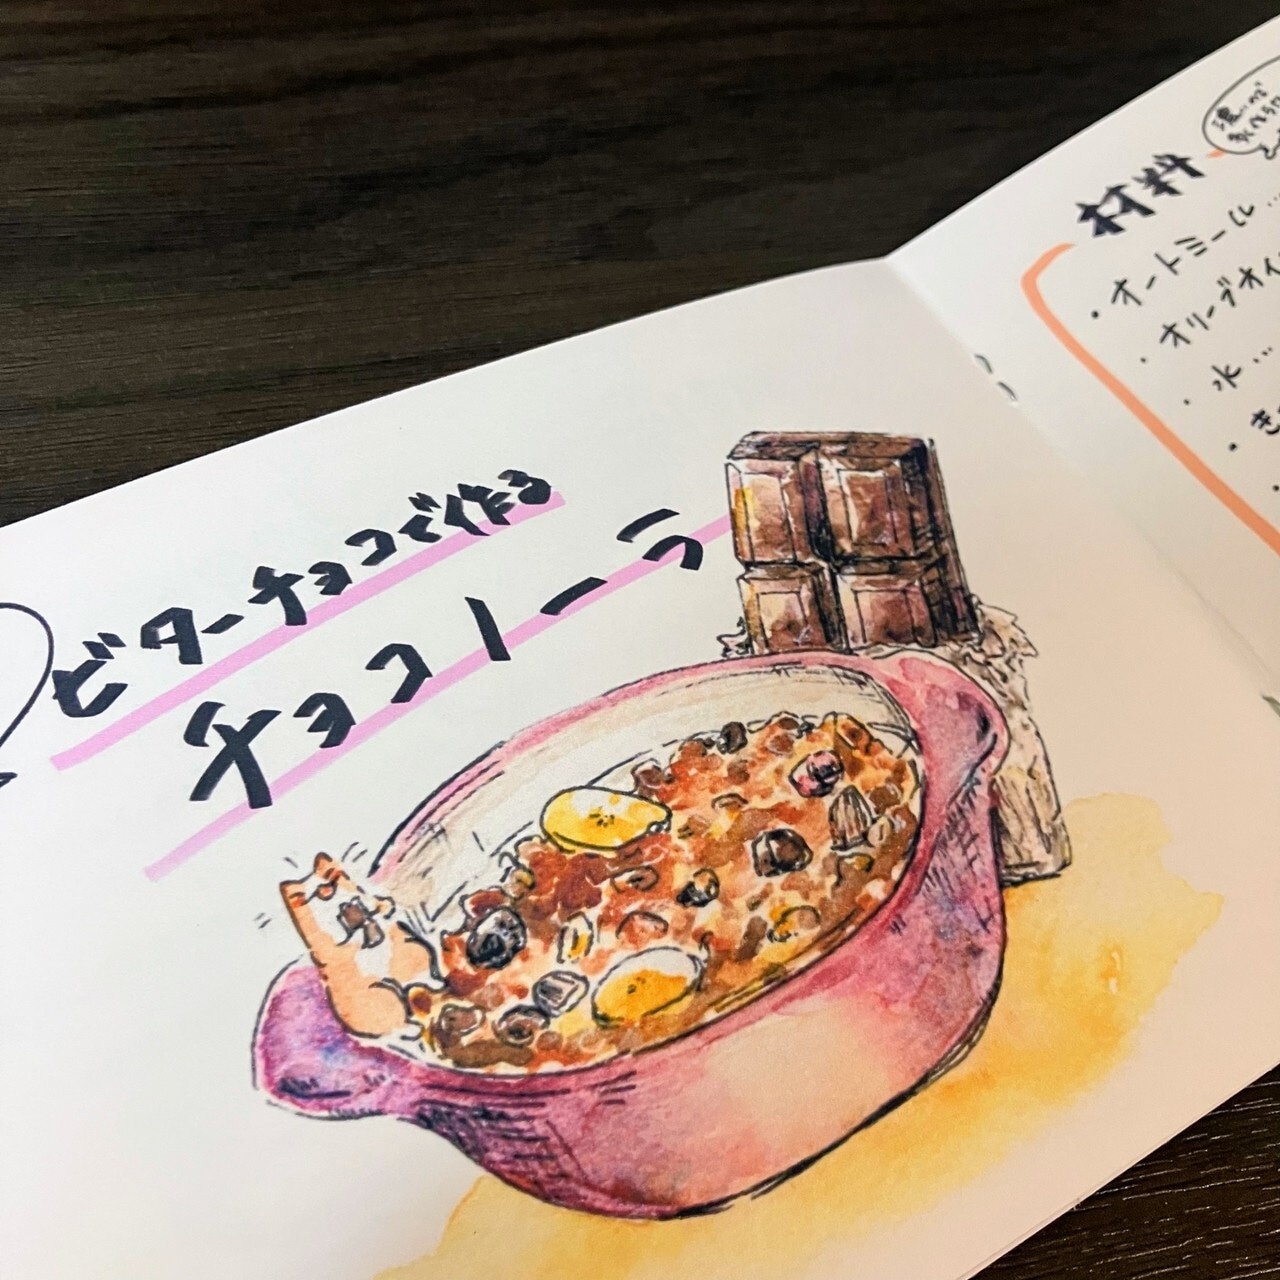 ビターチョコで作る
チョコノーラ
材料
・オートミール…
・オリーブオイ
・水…
・き